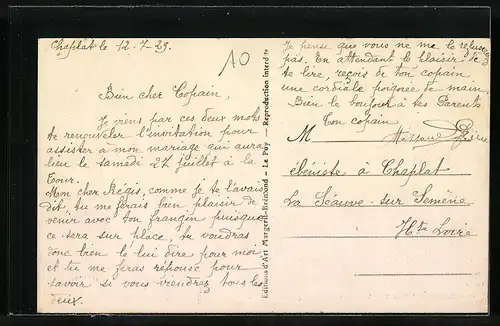 Chaplat le 12-7-29.
10
Bien cher Copain,
Je viens par ces deux mots
te renouveler l'invitation pour
assister à mon mariage qui aura
lieu le samedi 27 juillet à la
Tour.
Mon cher Régis, comme je te l'avais
dit, tu me ferais bien plaisir de
venir avec ton frangin puisque
ce sera sur place, tu voudras
donc bien le lui dire pour moi
et tu me feras réponse pour
savoir si vous viendrez tous les
deux.
Editions d'Art Margerit-Brémond - Le Puy - Reproduction interdite
Je pense que vous ne me le refuserez
pas. En attendant le plaisir de
te lire, reçois de ton copain
une cordiale poignée de main.
Bien le bonjour à tes Parents
Ton copain
M
ébéniste à Chaplat
La Séauve-sur Semène
Hte Loire